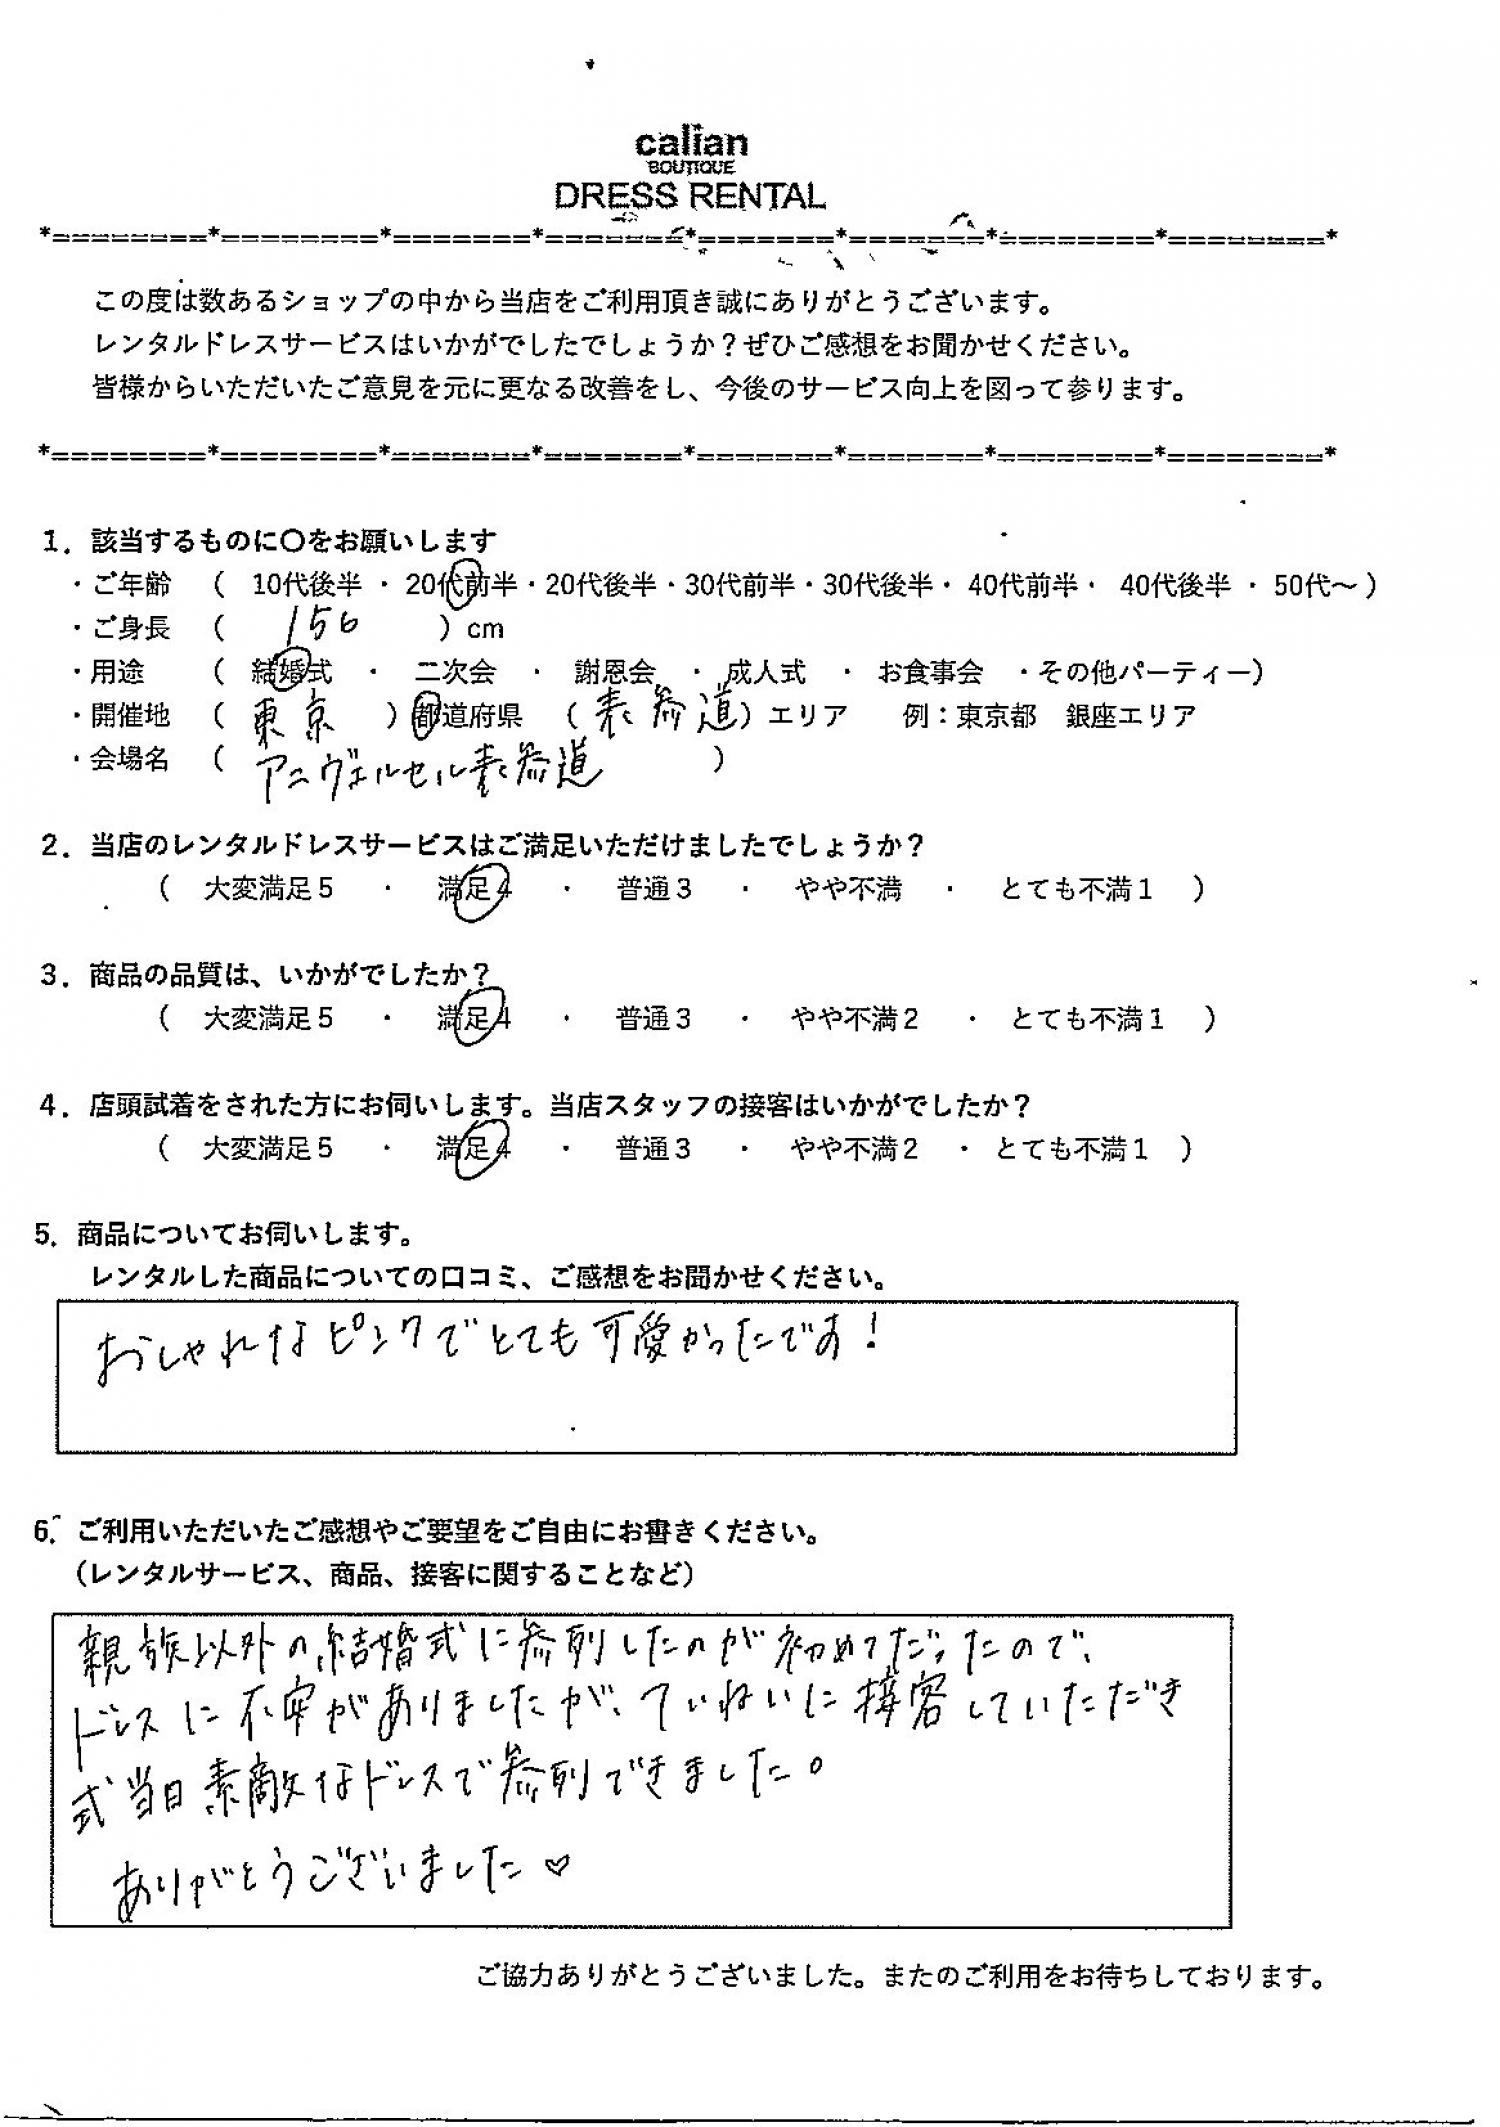 calian
BOUTIQUE
DRESS RENTAL
*========*========*=======*=======*=======*=======*========*========*
この度は数あるショップの中から当店をご利用頂き誠にありがとうございます。
レンタルドレスサービスはいかがでしたでしょうか？ぜひご感想をお聞かせください。
皆様からいただいたご意見を元に更なる改善をし、今後のサービス向上を図って参ります。
*========*========*=======*=======*=======*=======*========*========*
１．該当するものに〇をお願いします
・ご年齢 （ 10代後半 ・ 20代前半・20代後半・30代前半・30代後半・ 40代前半・ 40代後半 ・ 50代～ ）
・ご身長 （ 156 ）cm
・用途 （ 結婚式 ・ 二次会 ・ 謝恩会 ・ 成人式 ・ お食事会 ・その他パーティー）
・開催地 （ 東京 ）都道府県 （ 表参道 ）エリア 例：東京都 銀座エリア
・会場名 （ アニヴェルセル表参道 ）
２．当店のレンタルドレスサービスはご満足いただけましたでしょうか？
（ 大変満足５ ・ 満足４ ・ 普通３ ・ やや不満 ・ とても不満１ ）
３．商品の品質は、いかがでしたか？
（ 大変満足５ ・ 満足４ ・ 普通３ ・ やや不満２ ・ とても不満１ ）
４．店頭試着をされた方にお伺いします。当店スタッフの接客はいかがでしたか？
（ 大変満足５ ・ 満足４ ・ 普通３ ・ やや不満２ ・ とても不満１ ）
5．商品についてお伺いします。
レンタルした商品についての口コミ、ご感想をお聞かせください。
おしゃれなピンクでとても可愛かったです！
6．ご利用いただいたご感想やご要望をご自由にお書きください。
（レンタルサービス、商品、接客に関することなど）
親族以外の結婚式に参列したのが初めてだったので、
ドレスに不安がありましたが、ていねいに接客していただき
式当日素敵なドレスで参列できました。
ありがとうございました♡
ご協力ありがとうございました。またのご利用をお待ちしております。